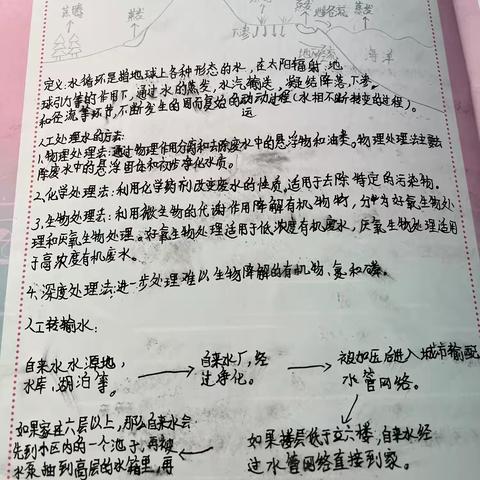 蒸腾
蒸发
下渗
蒸发
地表径流
地下径流
海洋
定义:水循环是指地球上各种形态的水,在太阳辐射、地
球引力等的作用下,通过水的蒸发,水汽输送,凝结降落,下渗。
和径流等环节,不断发生的周而复始的运动过程(水相不断转变的过程)。
人工处理水的方法:
1.物理处理法:通过物理作用分离和去除废水中的悬浮物和油类。物理处理法主要去
除废水中的悬浮固体和初步净化水质。
2.化学处理法:利用化学药剂改变废水的性质,适用于去除特定的污染物。
3.生物处理法:利用微生物的代谢作用降解有机物物,分为好氧生物处
理和厌氧生物处理。好氧生物处理适用于低浓度有机废水,厌氧生物处理适用
于高浓度有机废水。
4.深度处理法:进一步处理难以生物降解的有机物、氮和磷。
人工转输水:
自来水水源地,
水库,湖泊等。
自来水厂,经
过净化。
被加压后进入城市输配
水管网络。
如果楼层低于立六楼,自来水经
过水管网络直接到家。
如果家在六层以上,那么自来水会
先到小区内的一个池子,再被
水泵抽到高层的水箱里,再